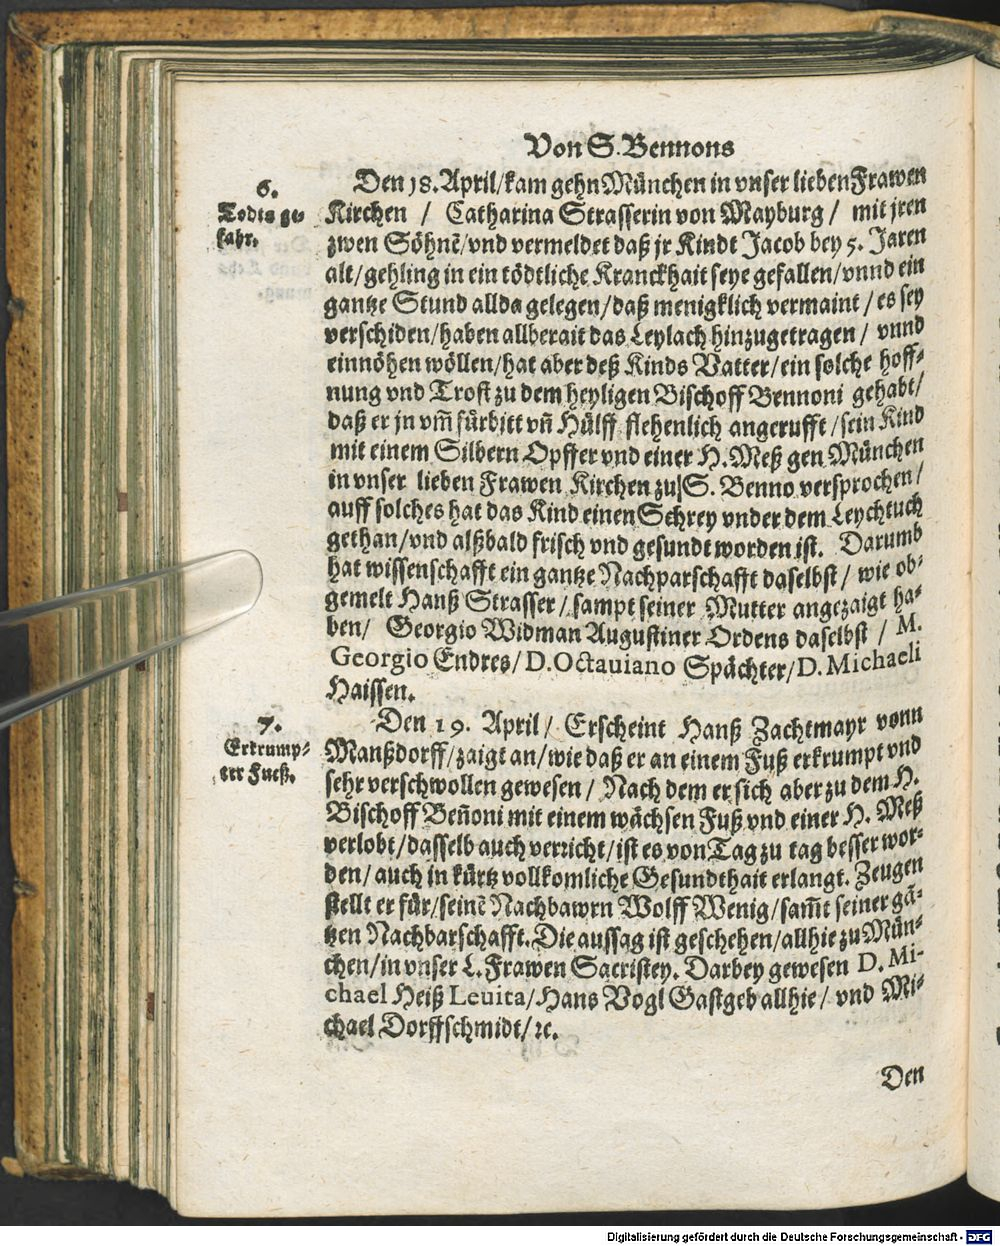 Von S. Bennons
6.
Todts ge-
fahr.
Den 18. April/ kam gehn München in vnser lieben Frawen
Kirchen / Catharina Strasserin von Mayburg / mit jren
zwen Söhnẽ/ vnd vermeldet daß jr Kindt Jacob bey 5. Jaren
alt/ gehling in ein tödtliche Kranckhait seye gefallen/ vnnd ein
gantze Stund allda gelegen/ daß menigklich vermaint / es sey
verschiden/ haben allberait das Leylach hinzugetragen / vnnd
einnöhen wöllen/ hat aber deß Kinds Vatter/ ein solche hoff-
nung vnd Trost zu dem heyligen Bischoff Bennoni gehabt/
daß er jn vm̃ fürbitt vñ Hülff flehenlich angerufft / sein Kind
mit einem Silbern Opffer vnd einer H. Meß gen München
in vnser lieben Frawen Kirchen zu S. Benno versprochen/
auff solches hat das Kind einen Schrey vnder dem Leychtuch
gethan/ vnd alßbald frisch vnd gesundt worden ist. Darumb
hat wissenschafft ein gantze Nachparschafft daselbst / wie ob-
gemelt Hanß Strasser / sampt seiner Mutter angezaigt ha-
ben/ Georgio Widman Augustiner Ordens daselbst / M.
Georgio Endres/ D. Octauiano Spächter/ D. Michaeli
Haissen.
7.
Erkrump-
ter Fueß.
Den 19. April/ Erscheint Hanß Zachtmayr vonn
Manßdorff/ zaigt an/ wie daß er an einem Fuß erkrumpt vnd
sehr verschwollen gewesen / Nach dem er sich aber zu dem H.
Bischoff Beñoni mit einem wächsen Fuß vnd einer H. Meß
verlobt/ dasselb auch verricht/ ist es von Tag zu tag besser wor-
den/ auch in kürtz vollkomliche Gesundthait erlangt. Zeugen
stellt er für/ seinẽ Nachbawrn Wolff Wenig/ sam̃t seiner gã-
tzen Nachbarschafft. Die aussag ist geschehen/ allhie zu Mün-
chen/ in vnser L. Frawen Sacristey. Darbey gewesen D. Mi-
chael Heiß Leuita/ Hans Vogl Gastgeb allhie/ vnd Mi-
chael Dorffschmidt/ ꝛc.
Den
Digitalisierung gefördert durch die Deutsche Forschungsgemeinschaft - DFG